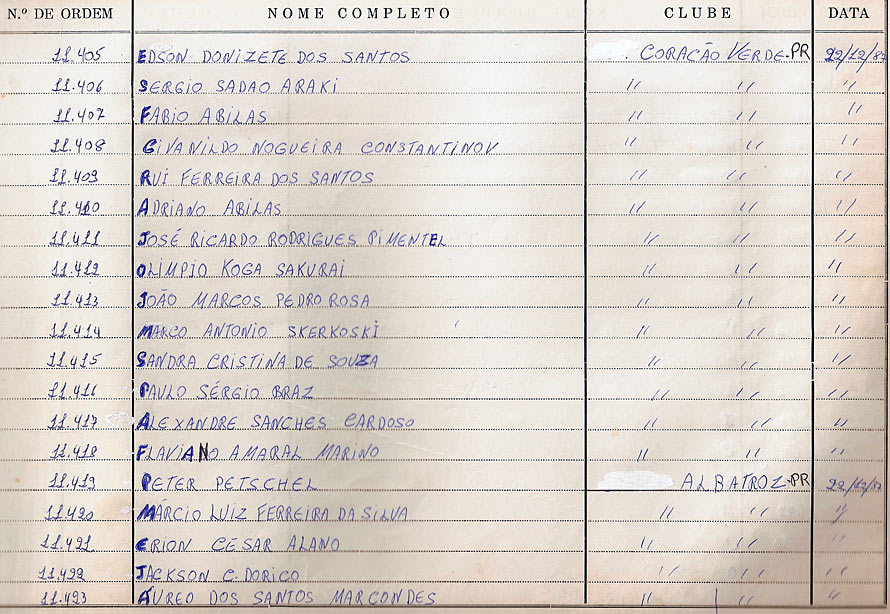 N.º DE ORDEM NOME COMPLETO CLUBE DATA
11.405 EDSON DONIZETE DOS SANTOS CORAÇÃO VERDE-PR 22/12/87
11.406 SERGIO SADAO ARAKI " " "
11.407 FABIO ABILAS " " "
11.408 GIVANILDO NOGUEIRA CONSTANTINOV " " "
11.409 RUI FERREIRA DOS SANTOS " " "
11.410 ADRIANO ABILAS " " "
11.411 JOSÉ RICARDO RODRIGUES PIMENTEL " " "
11.412 OLIMPIO KOGA SAKURAI " " "
11.413 JOÃO MARCOS PEDRO ROSA " " "
11.414 MARCO ANTONIO SKERKOSKI " " "
11.415 SANDRA CRISTINA DE SOUZA " " "
11.416 PAULO SÉRGIO BRAZ " " "
11.417 ALEXANDRE SANCHES CARDOSO " " "
11.418 FLAVIANO AMARAL MARINO " " "
11.419 PETER PETSCHEL ALBATROZ-PR 22/12/87
11.420 MÁRCIO LUIZ FERREIRA DA SILVA " " "
11.421 ERION CESAR ALANO " " "
11.422 JACKSON C. DORICO " " "
11.423 ÁUREO DOS SANTOS MARCONDES " " "